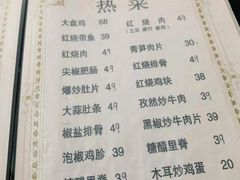 热菜
大盘鸡 68
红烧带鱼 39
红烧肉 49
尖椒肥肠 49
爆炒肚片 49
大蒜肚条 49
椒盐排骨 49
泡椒鸡胗 39
糖醋里脊
红烧肉 49
青笋肉片 30
红烧排骨 49
红烧鸡块 38
孜然炒牛肉
黑椒炒牛肉 49
糖醋里脊 39
木耳炒鸡蛋
20